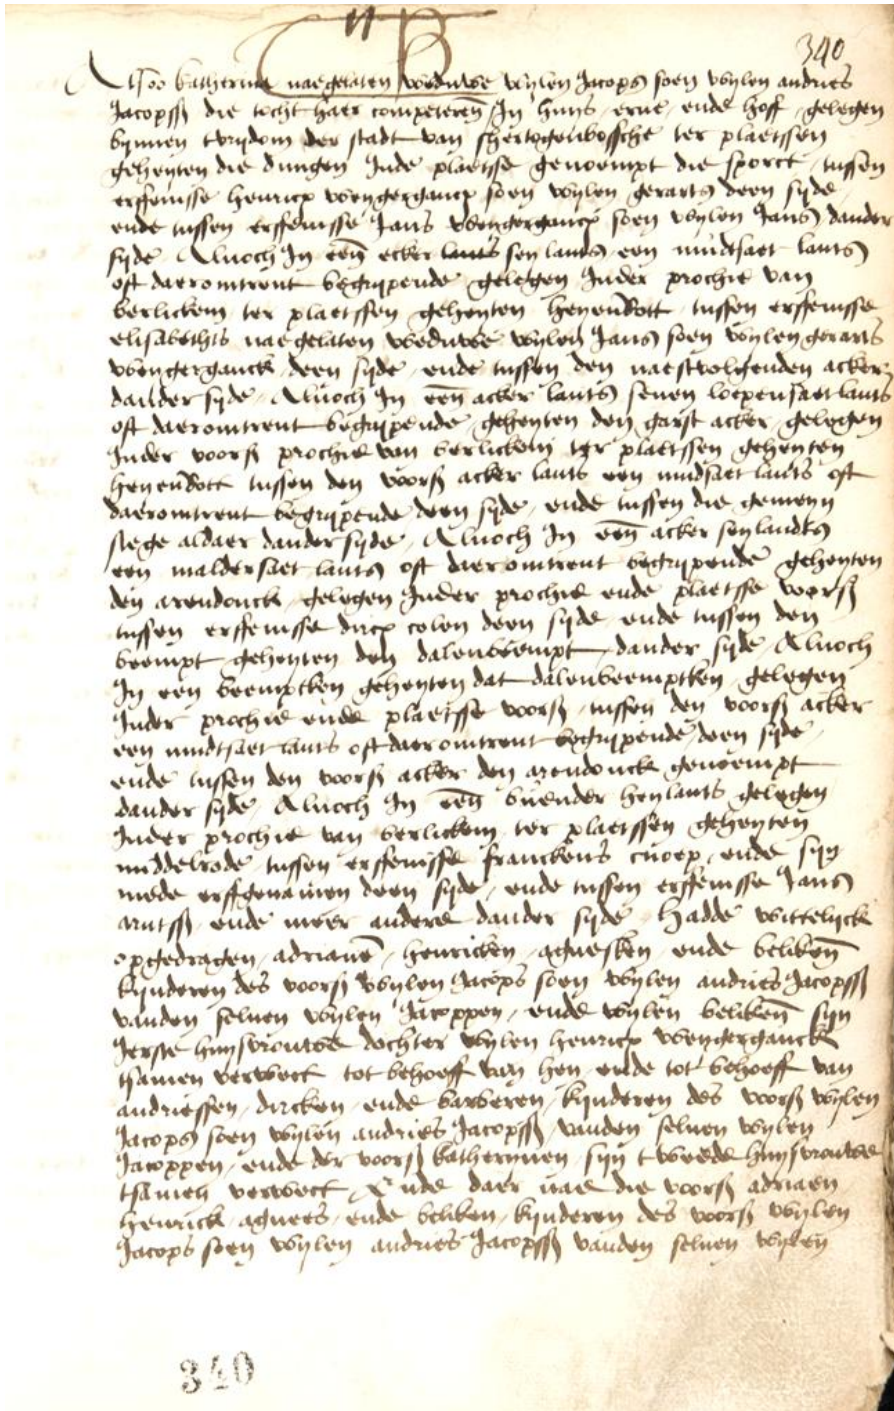 340
Alsoo katherina naegelaten weduwe wylen Jacops soen wylen andries
Jacopss die tocht haer competeren In huys erve ende hoff gelegen
bynnen tvrydom der stadt van shertogenbossche ter plaetssen
geheyten die dungen Inde plaetsse genoempt die sporct tussen
erffenisse henricx wengergancx soen wylen gerarts deen syde
ende tussen erffenisse Jans wengergancx soen wylen Jans dander
syde Alnoch In een ecker lants een mudtsaet lants
oft daeromtrent begrypende gelegen Inder prochie van
berlickem ter plaetssen geheyten tussen erffenisse
elisabeths naegelaten weduwe wylen Jans soen wylen gerarts
wengerganck deen syde ende tussen den naestvolgenden acker
dander syde Alnoch In een acker lants seven loepensaet lants
oft daeromtrent begrypende geheyten den garst acker gelegen
Inder voors prochie van berlickem ter plaetssen geheyten
tussen den voors acker lants een mudsaet lants oft
daeromtrent begrypende deen syde ende tussen die gemeyn
stege aldaer dander syde Alnoch In een acker seylandts
een maldersaet lants oft daeromtrent begrypende geheyten
den arendonck gelegen Inder prochie ende plaetsse voors
tussen erffenisse dircx colen deen syde ende tussen den
beempt geheyten den dalenbeempt dander syde Alnoch
In een beemptken geheyten dat dalenbeemptken gelegen
Inder prochie ende plaetsse voors tussen den voors acker
een mudtsaet lants oft daeromtrent begrypende deen syde
ende tussen den voors acker den arendonck genoempt
dander syde Alnoch In een buender heylants gelegen
Inder prochie van berlickem ter plaetssen geheyten
middelrode tussen erffenisse franckens cnoep ende syn
mede erffgenamen deen syde ende tussen erffenisse Jans
arntss ende meer andere dander syde hadde wittelyck
opgedragen adriaen henricken agnesken ende beliken
kynderen des voors wylen Jacops soen wylen andries Jacopss
vanden selven wylen Jacoppen ende wylen beliken syn
Jerste huysvrouwe dochter wylen henricx wengerganck
tsamen verwect tot behoeff van hen ende tot behoeff van
andriessen dircken ende barberen kynderen des voors wylen
Jacops soen wylen andries Jacopss vanden selven wylen
Jacoppen ende der voors katherynen syn tweede huysvrouwe
tsamen verwect Ende daer nae die voors adriaen
henrick agnees ende beliken kynderen des voors wylen
Jacops soen wylen andries Jacopss vanden selven wylen
340